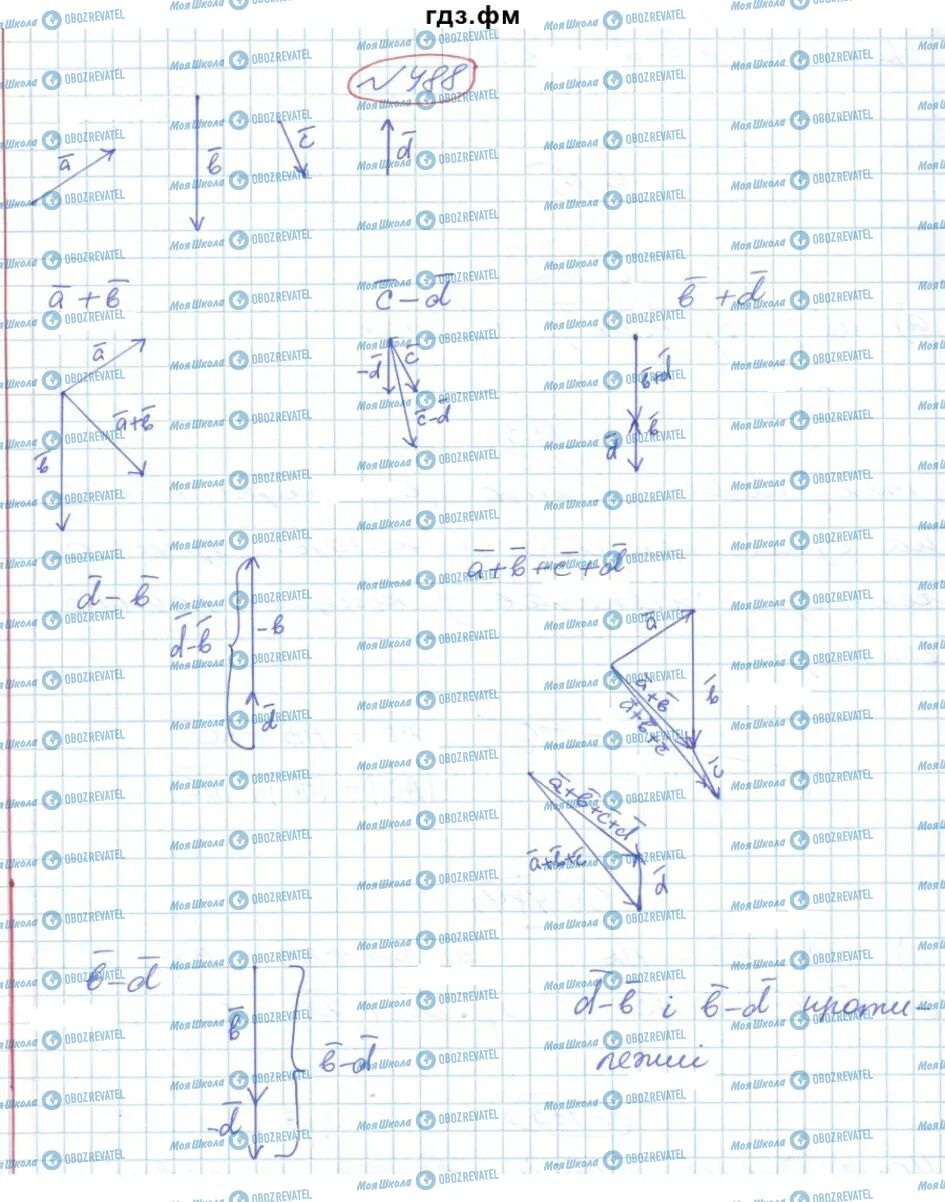 гдз.фм
№ 488
a̅ b̅ c̅ d̅
a̅ + b̅ c̅ - d̅ b̅ + d̅
a̅ a̅+b̅ b̅
-d̅ c̅ c̅-d̅
b̅+d̅ b̅ d̅
d̅ - b̅ d̅-b̅ -b d̅
a̅ + b̅ + c̅ + d̅
a̅ b̅ a̅+b̅ a̅+b̅+c̅ c̅
a̅+b̅+c̅+d̅
a̅+b̅+c̅ d̅
b̅ - d̅ b̅ -d̅ b̅-d̅
d̅-b̅ і b̅-d̅ проти-
лежні
МояШкола OBOZREVATEL